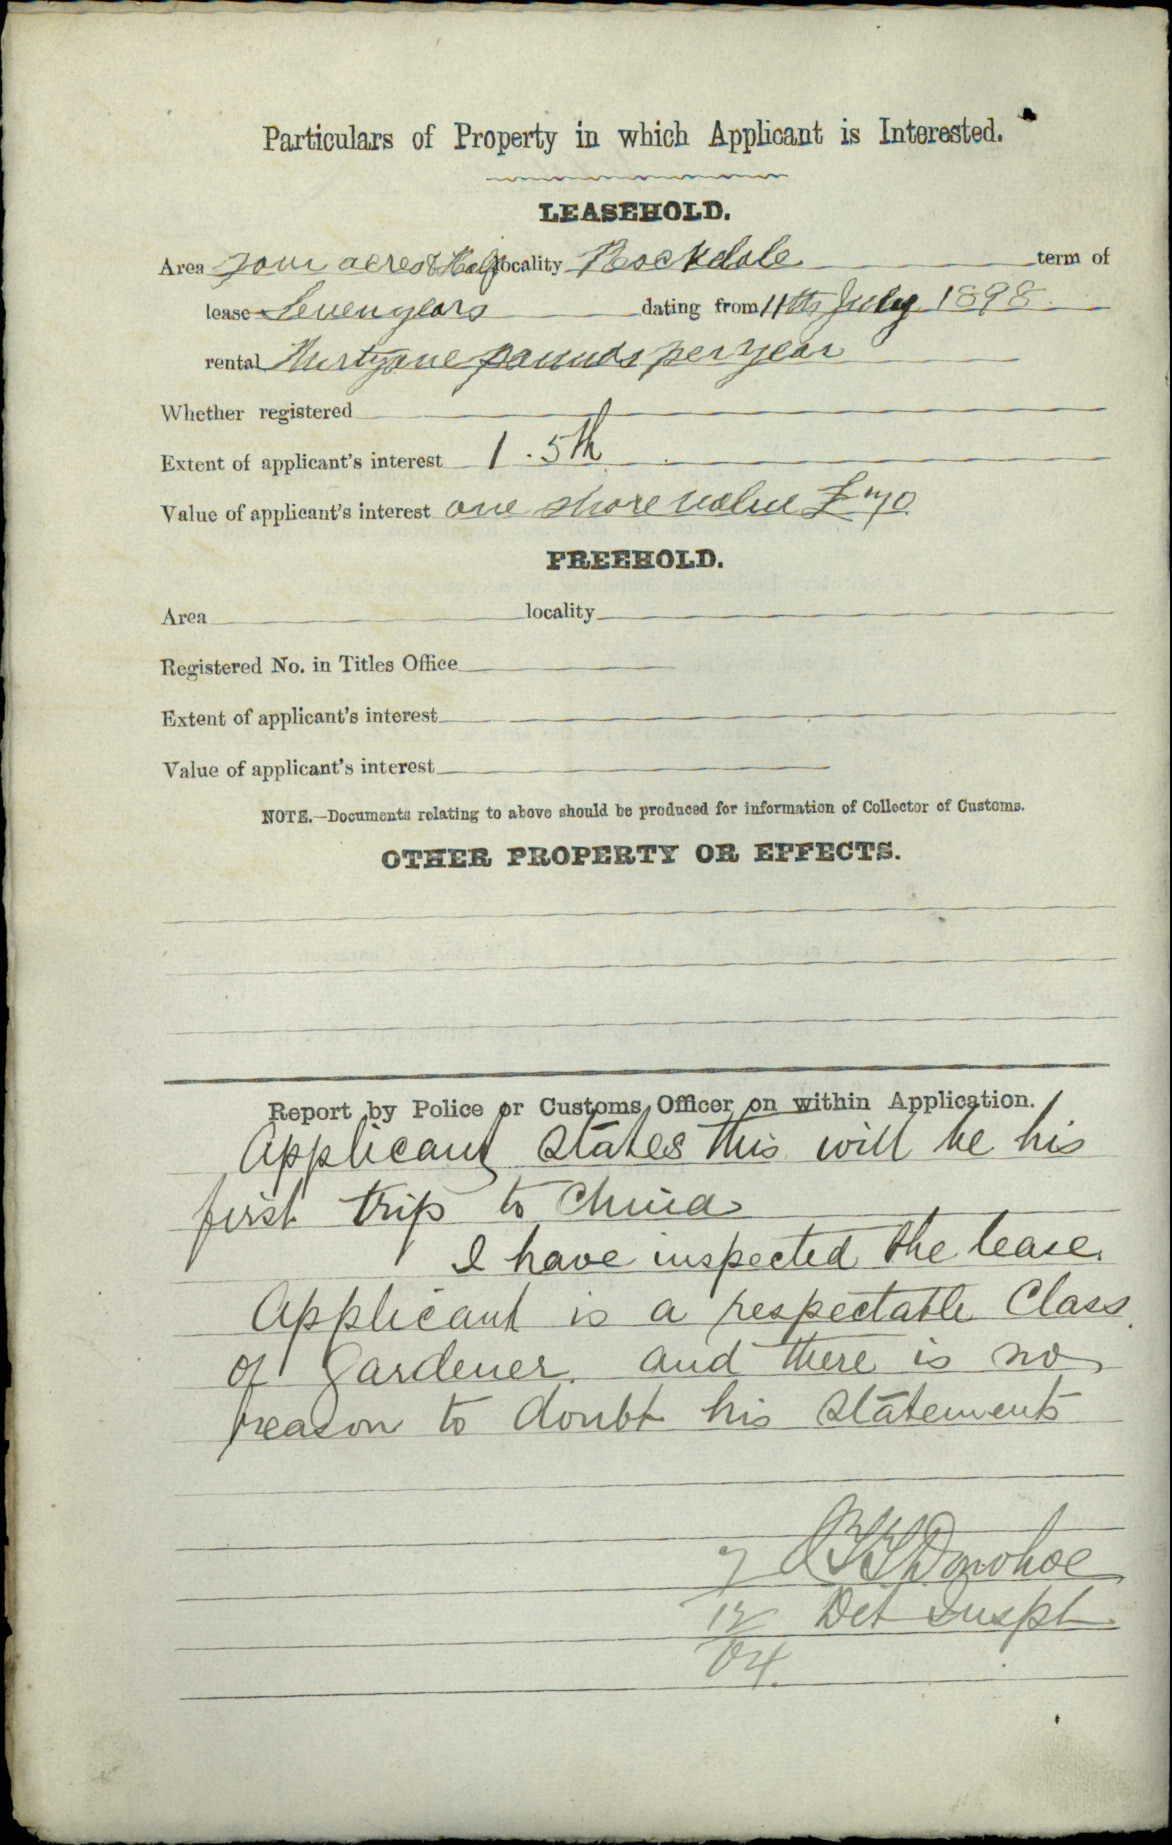 Particulars of Property in which Applicant is Interested.
LEASEHOLD.
Area Four acres & Half locality Rockdale term of
lease Seven years dating from 11th July 1898
rental Thirty one pounds per year
Whether registered
Extent of applicant's interest 1.5th
Value of applicant's interest one share value £70
FREEHOLD.
Area locality
Registered No. in Titles Office
Extent of applicant's interest
Value of applicant's interest
NOTE.—Documents relating to above should be produced for information of Collector of Customs.
OTHER PROPERTY OR EFFECTS.
Report by Police or Customs Officer on within Application.
Applicant states this will be his
first trip to China
I have inspected the lease.
Applicant is a respectable Class
of Gardener. and there is no
reason to doubt his statements
7 Donohoe
12 Det Inspt
04.